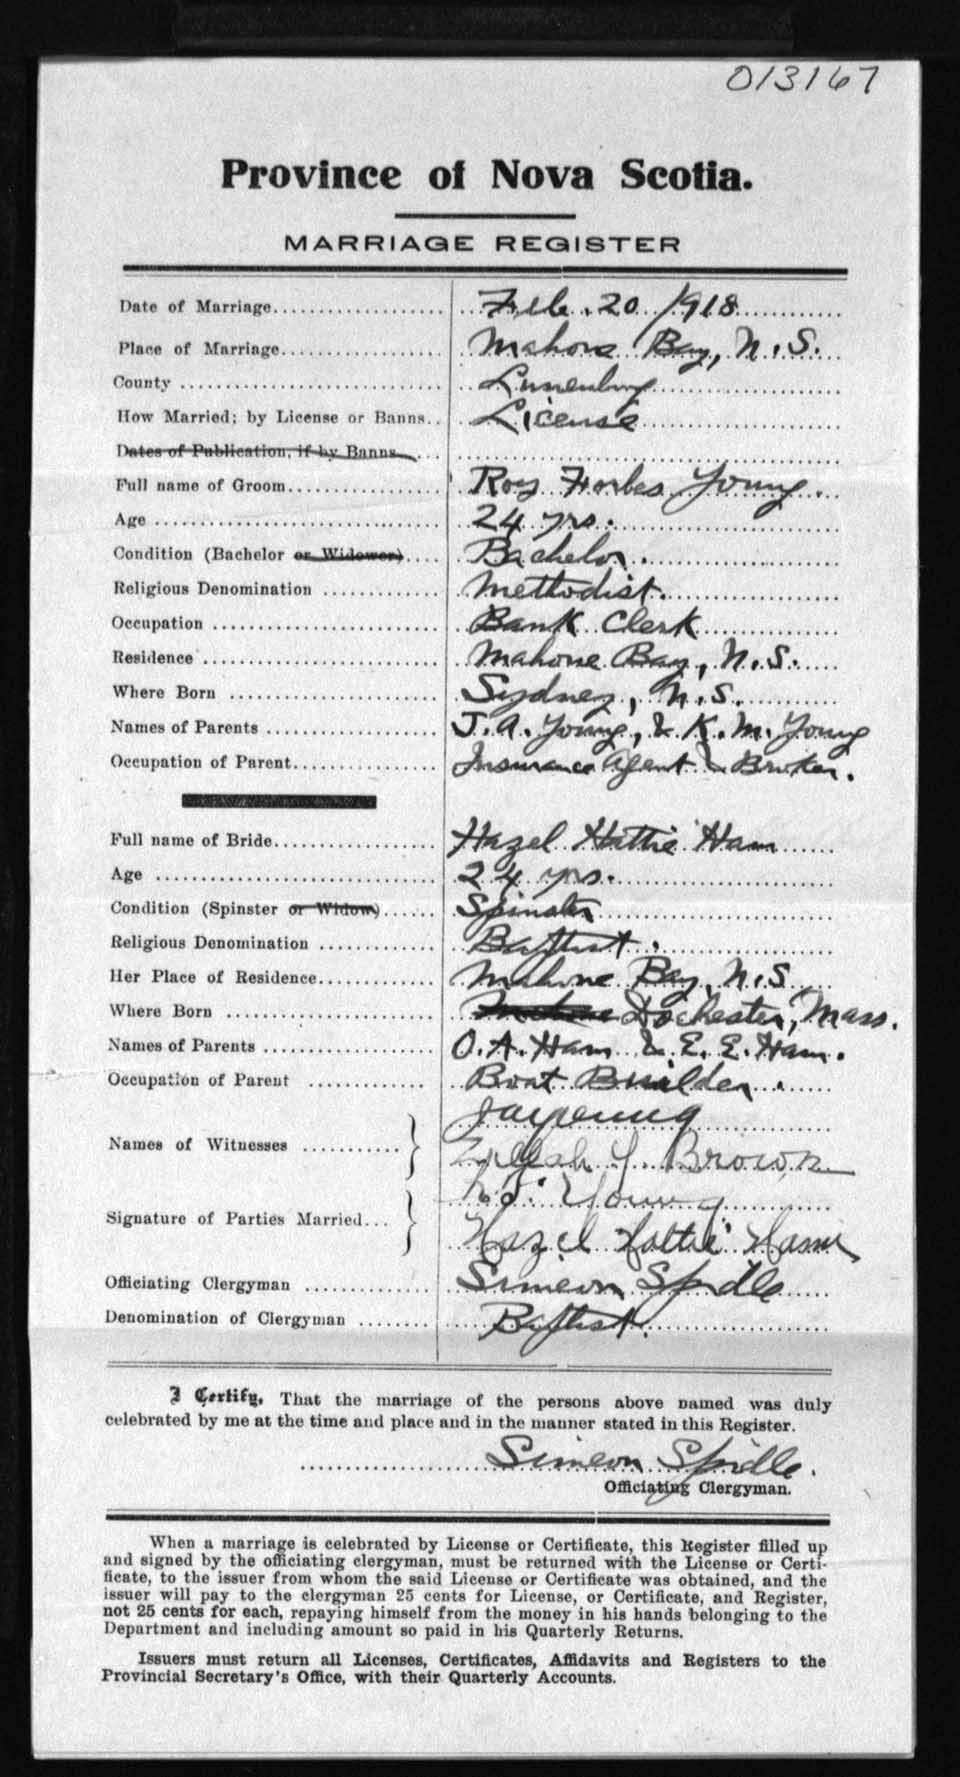 013167
Province of Nova Scotia.
MARRIAGE REGISTER
Date of Marriage Feb. 20/1918
Place of Marriage Mahone Bay, N.S.
County Lunenburg
How Married; by License or Banns License
Dates of Publication, if by Banns
Full name of Groom Roy Forbes Young.
Age 24 yrs.
Condition (Bachelor or Widower) Bachelor.
Religious Denomination Methodist.
Occupation Bank Clerk
Residence Mahone Bay, N.S.
Where Born Sydney, N.S.
Names of Parents J. A. Young, & K. M. Young
Occupation of Parent Insurance Agent & Broker.
Full name of Bride Hazel Hattie Ham
Age 24 yrs.
Condition (Spinster or Widow) Spinster
Religious Denomination Baptist.
Her Place of Residence Mahone Bay, N.S.
Where Born Mahone Dochester, Mass.
Names of Parents O. A. Ham & E. E. Ham.
Occupation of Parent Boat Builder.
J A Young
Names of Witnesses
Y. Brown
Young
Signature of Parties Married
Hazel Hattie Ham
Officiating Clergyman Simeon Spidle
Denomination of Clergyman Baptist.
I Certify, That the marriage of the persons above named was duly
celebrated by me at the time and place and in the manner stated in this Register.
Simeon Spidle.
Officiating Clergyman.
When a marriage is celebrated by License or Certificate, this Register filled up
and signed by the officiating clergyman, must be returned with the License or Certi-
ficate, to the issuer from whom the said License or Certificate was obtained, and the
issuer will pay to the clergyman 25 cents for License, or Certificate, and Register,
not 25 cents for each, repaying himself from the money in his hands belonging to the
Department and including amount so paid in his Quarterly Returns.
Issuers must return all Licenses, Certificates, Affidavits and Registers to the
Provincial Secretary's Office, with their Quarterly Accounts.